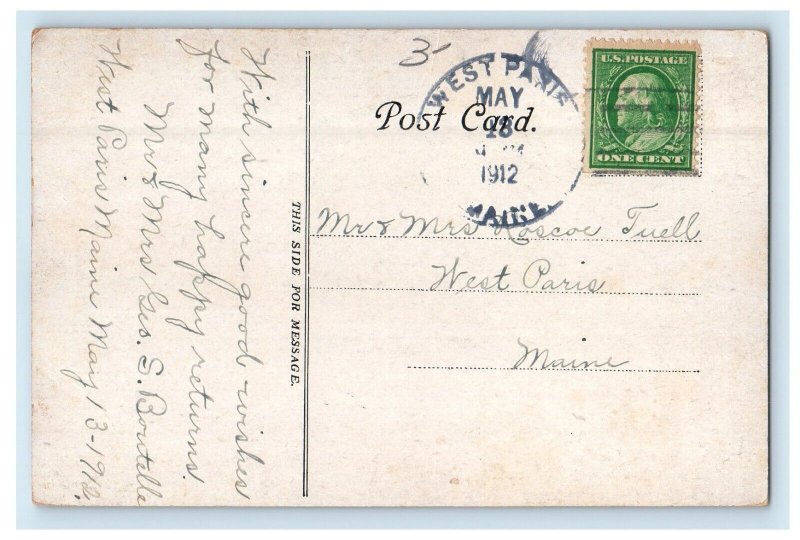 3
WEST PARIS
MAY
13
1912
MAINE
U.S. POSTAGE
ONE CENT
Post Card.
THIS SIDE FOR MESSAGE.
With sincere good wishes
for many happy returns.
Mr & Mrs Geo. S. Boutelle
West Paris Maine May 13-1912.
Mr & Mrs Roscoe Tuell
West Paris
Maine